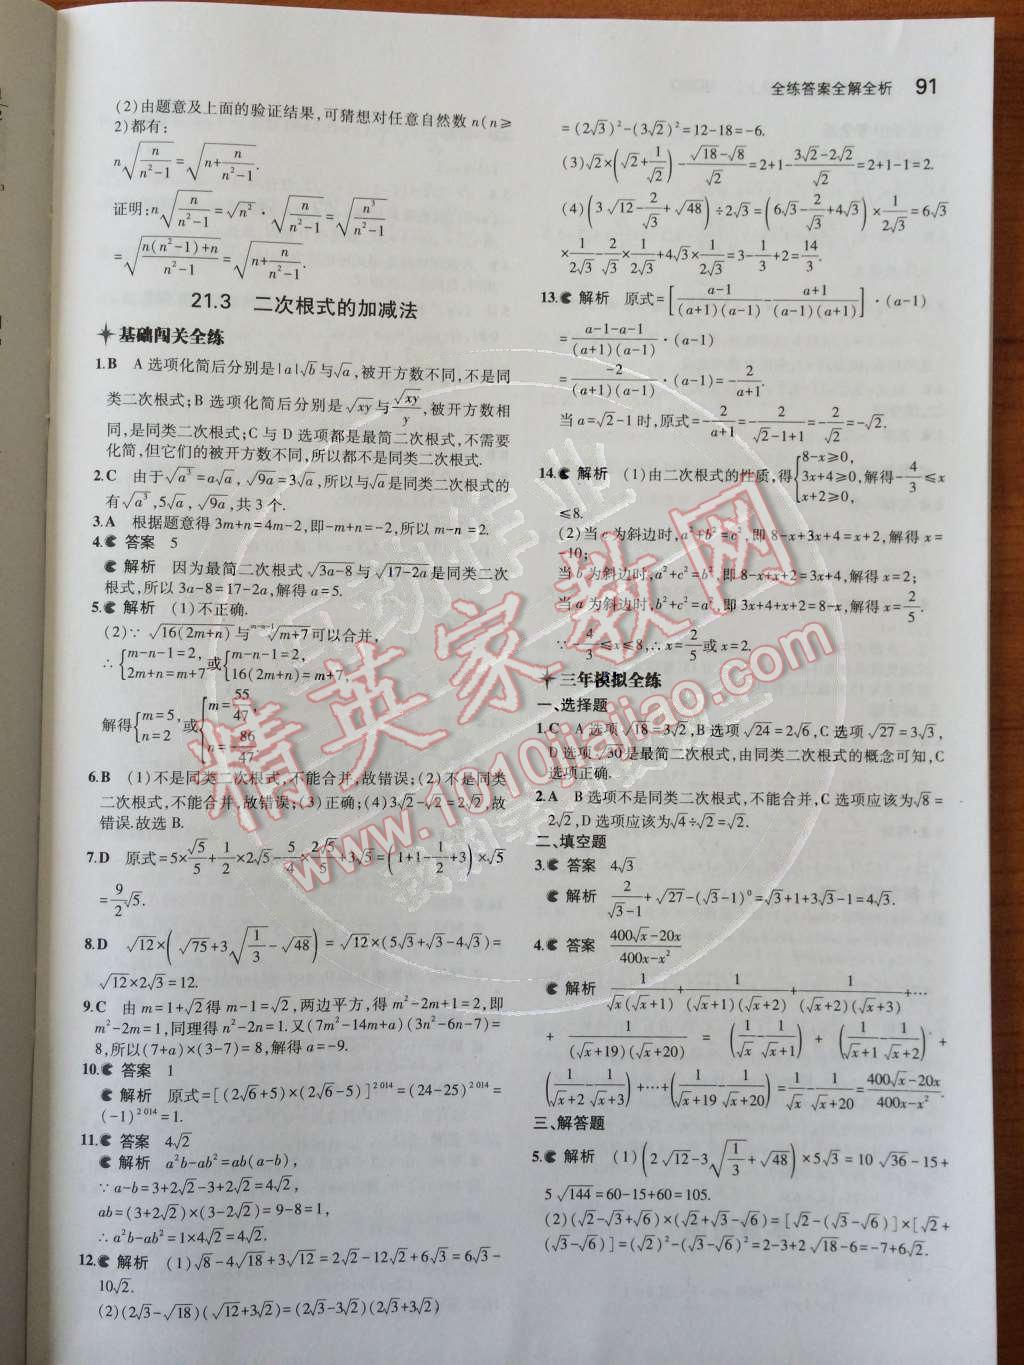 全练答案全解全析 91
(2)由题意及上面的验证结果,可猜想对任意自然数 n(n≥
2)都有:
n√(n/(n²-1))=√(n+n/(n²-1)).
证明:n√(n/(n²-1))=√n²·√(n/(n²-1))=√(n³/(n²-1))
=√((n(n²-1)+n)/(n²-1))=√(n+n/(n²-1)).
21.3 二次根式的加减法
基础闯关全练
1.B A 选项化简后分别是|a|√b与√a,被开方数不同,不是同
类二次根式;B 选项化简后分别是√xy与√xy/y,被开方数相
同,是同类二次根式;C 与 D 选项都是最简二次根式,不需要
化简,但它们的被开方数不同,所以都不是同类二次根式.
2.C 由于√a³=a√a,√9a=3√a,所以与√a是同类二次根式的
有√a³,5√a,√9a,共 3 个.
3.A 根据题意得 3m+n=4m-2,即-m+n=-2,所以 m-n=2.
4. 答案 5
解析 因为最简二次根式√(3a-8)与√(17-2a)是同类二次
根式,所以 3a-8=17-2a,解得 a=5.
5. 解析 (1)不正确.
(2)∵ √(16(2m+n))与 ᵐ⁻ⁿ⁻¹√(m+7)可以合并,
∴ {m-n-1=2, 2m+n=m+7 或 {m-n-1=2, 16(2m+n)=m+7,
解得 {m=5, n=2 或 {m=55/47, n=-86/47.
6.B (1)不是同类二次根式,不能合并,故错误;(2)不是同类
二次根式,不能合并,故错误;(3)正确;(4)3√2-√2=2√2,故
错误.故选 B.
7.D 原式=5×√5/5+1/2×2√5-5/4×2√5/5+3√5=(1+1-1/2+3)×√5
=9/2√5.
8.D √12×(√75+3√(1/3)-√48)=√12×(5√3+√3-4√3)=
√12×2√3=12.
9.C 由 m=1+√2得 m-1=√2,两边平方,得 m²-2m+1=2,即
m²-2m=1,同理得 n²-2n=1.又(7m²-14m+a)(3n²-6n-7)=
8,所以(7+a)×(3-7)=8,解得 a=-9.
10. 答案 1
解析 原式=[(2√6+5)×(2√6-5)]²⁰¹⁴=(24-25)²⁰¹⁴=
(-1)²⁰¹⁴=1.
11. 答案 4√2
解析 a²b-ab²=ab(a-b),
∵ a-b=3+2√2-3+2√2=4√2,
ab=(3+2√2)×(3-2√2)=9-8=1,
∴ a²b-ab²=1×4√2=4√2.
12. 解析 (1)√8-4√18+3√12=2√2-12√2+6√3=6√3-
10√2.
(2)(2√3-√18)(√12+3√2)=(2√3-3√2)(2√3+3√2)
=(2√3)²-(3√2)²=12-18=-6.
(3)√2×(√2+1/√2)-(√18-√8)/√2=2+1-(3√2-2√2)/√2=2+1-1=2.
(4)(3√12-2/√3+√48)÷2√3=(6√3-2/√3+4√3)×1/(2√3)=6√3
×1/(2√3)-2/√3×1/(2√3)+4√3×1/(2√3)=3-1/3+2=14/3.
13. 解析 原式=[(a-1)/((a+1)(a-1))-(a+1)/((a-1)(a+1))]·(a-1)
=(a-1-a-1)/((a+1)(a-1))·(a-1)
=-2/((a+1)(a-1))·(a-1)=-2/(a+1).
当 a=√2-1 时,原式=-2/(a+1)=-2/(√2-1+1)=-2/√2=-√2.
14. 解析 (1)由二次根式的性质,得{8-x≥0, 3x+4≥0, x+2≥0, 解得-4/3≤x
≤8.
(2)当 c 为斜边时,a²+b²=c²,即 8-x+3x+4=x+2,解得 x=
-10;
当 b 为斜边时,a²+c²=b²,即 8-x+x+2=3x+4,解得 x=2;
当 a 为斜边时,b²+c²=a²,即 3x+4+x+2=8-x,解得 x=2/5.
∵ -4/3≤x≤8,∴ x=2/5或 x=2.
三年模拟全练
一、选择题
1.C A 选项√18=3√2,B 选项√24=2√6,C 选项√27=3√3,
D 选项√30是最简二次根式,由同类二次根式的概念可知,C
选项正确.
2.A B 选项不是同类二次根式,不能合并,C 选项应该为√8=
2√2,D 选项应该为√4÷√2=√2.
二、填空题
3. 答案 4√3
解析 2/(√3-1)+√27-(√3-1)⁰=√3+1+3√3-1=4√3.
4. 答案 (400√x-20x)/(400x-x²)
解析 1/(√x(√x+1))+1/((√x+1)(√x+2))+1/((√x+2)(√x+3))+…
+1/((√x+19)(√x+20))=(1/√x-1/(√x+1))+(1/(√x+1)-1/(√x+2))+
(1/(√x+2)-1/(√x+3))+…+(1/(√x+19)-1/(√x+20))=1/√x-1/(√x+20)=(400√x-20x)/(400x-x²).
三、解答题
5. 解析 (1)(2√12-3√(1/3)+√48)×5√3=10√36-15+
5√144=60-15+60=105.
(2)(√2-√3+√6)×(√2+√3-√6)=[√2-(√3-√6)]×[√2+
(√3-√6)]=(√2)²-(√3-√6)²=2-3+2√18-6=-7+6√2.
精英家教网
www.1010jiajiao.com